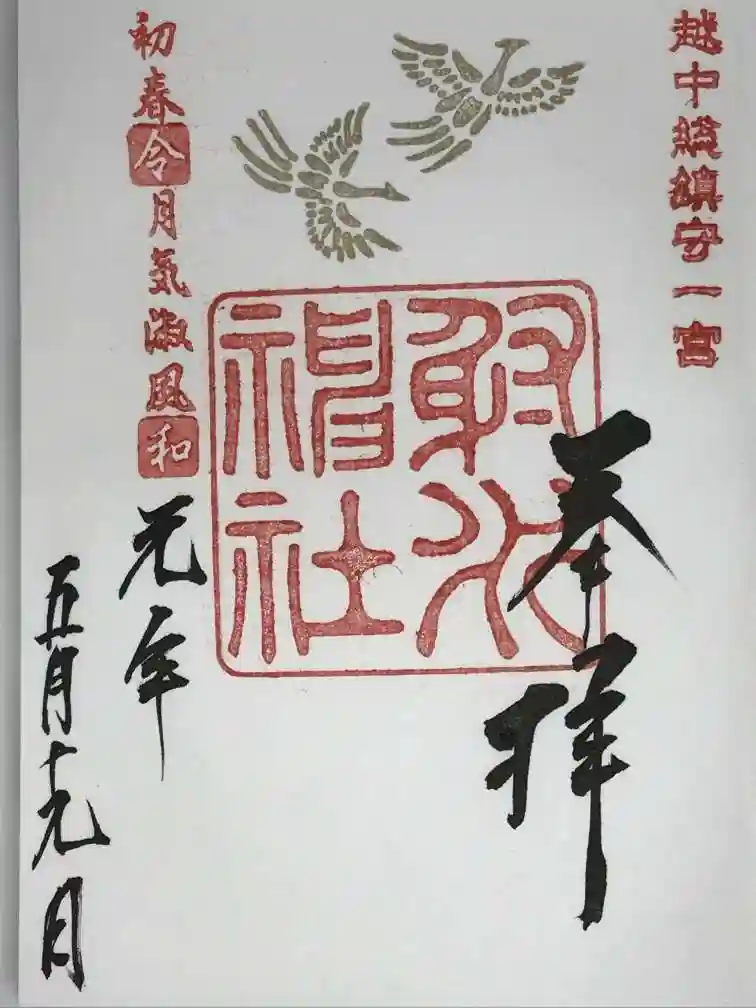 越中総鎮守一宮
奉拝
射水
神社
初春令月気淑風和
元年
五月十九日